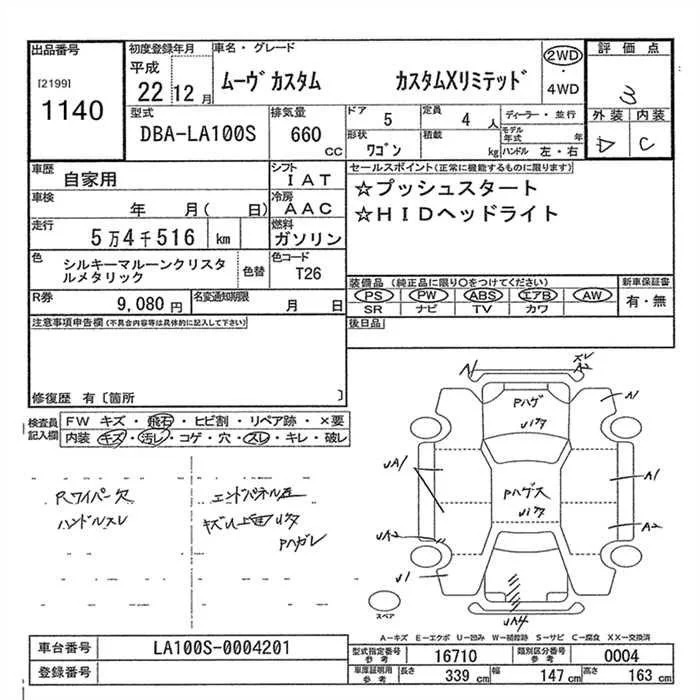 出品番号
[2199]
1140
初度登録年月
平成
22 12 月
車名・グレード
ムーヴカスタム カスタムXリミテッド
2WD
・
4WD
評価点
3
外装 内装
C
型式
DBA-LA100S
排気量
660
CC
ドア
5
定員
4 人
形状
ワゴン
積載
kg
ディーラー・並行
モデル年式 年
ハンドル 左・右
車歴
自家用
シフト
IAT
車検
年 月( 日)
冷房
AAC
走行
5万4千516 km
燃料
ガソリン
色
シルキーマルーンクリスタ
ルメタリック
色替
色コード
T26
R券
9,080 円
名変通知期限
月 日
セールスポイント(正常に機能するものに限ります)
☆プッシュスタート
☆HIDヘッドライト
装備品(純正品に限り○をつけてください)
PS PW ABS エアB AW
SR ナビ TV カワ
新車保証書
有・無
後日品
注意事項申告欄(不具合内容等は具体的に記入して下さい)
修復歴 有〔箇所 〕
検査員
記入欄
FW キズ・飛石・ヒビ割・リペア跡・×要
内装 キズ・汚レ・コゲ・穴・スレ・キレ・破レ
Rワイパー欠
ハンドルスレ
エンドパネル
キズ
Pハガレ
A1
スレ
A2
Pハゲ
A1
UA1
Pハゲス
A1
UA2
A2
U1
UA4
スペア
A-キズ E-エクボ U-凹み W-補修跡 S-サビ C-腐食 XX-交換済
車台番号
LA100S-0004201
登録番号
型式指定番号
参考
16710
類別区分番号
参考
0004
車庫証明用
参考
長さ
339 cm
幅
147 cm
高さ
163 cm